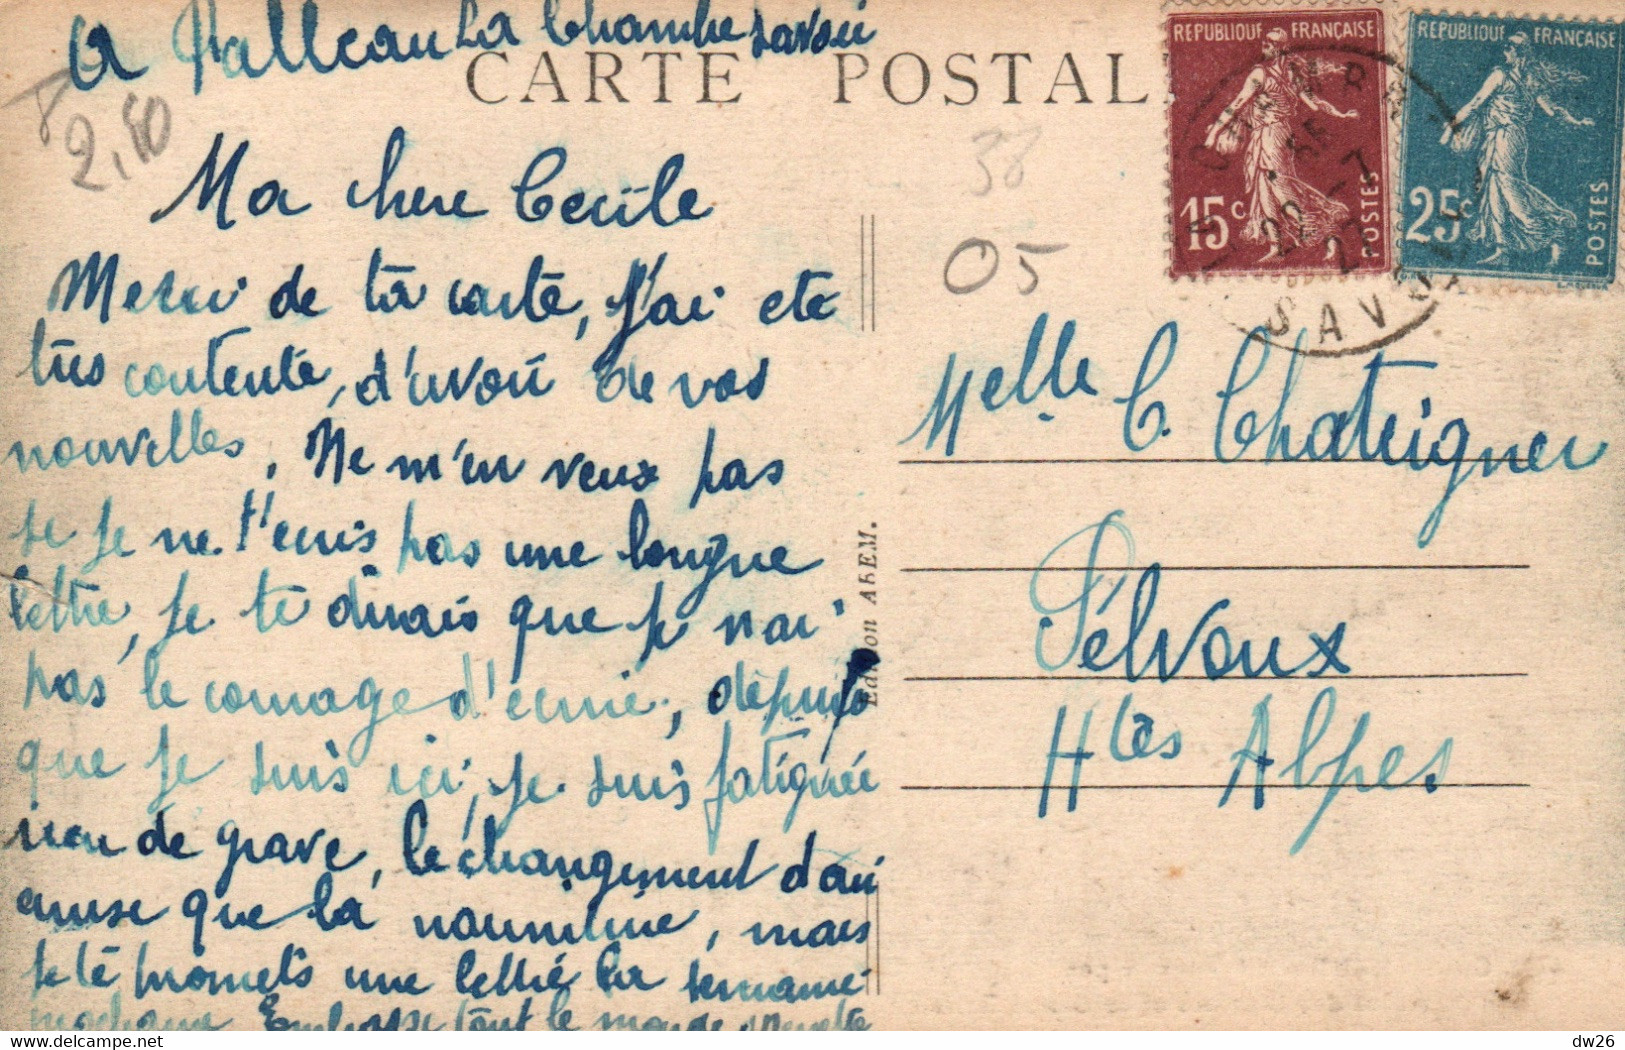 La Chambre Savoie
CARTE POSTAL
2,50
38
05
RÉPUBLIQUE FRANÇAISE
15c.
POSTES
RÉPUBLIQUE FRANÇAISE
25c
POSTES
SAVOIE
Ma chere Cecile
Merci de ta carte, j'ai ete
très contente, d'avoir de vos
nouvelles. Ne m'en veux pas
se je ne t'ecris pas une longue
lettre, je te dirais que je n'ai
pas le courage d'ecrire, depuis
que je suis ici, je suis fatiguée
rien de grave, le changement d'air
ainsi que la nourriture, mais
je te promets une lettre la semaine
prochaine Embrasse tout le monde
Edition ABEM.
Melle C. Chateigner
Pélvoux
Htes Alpes
dw26